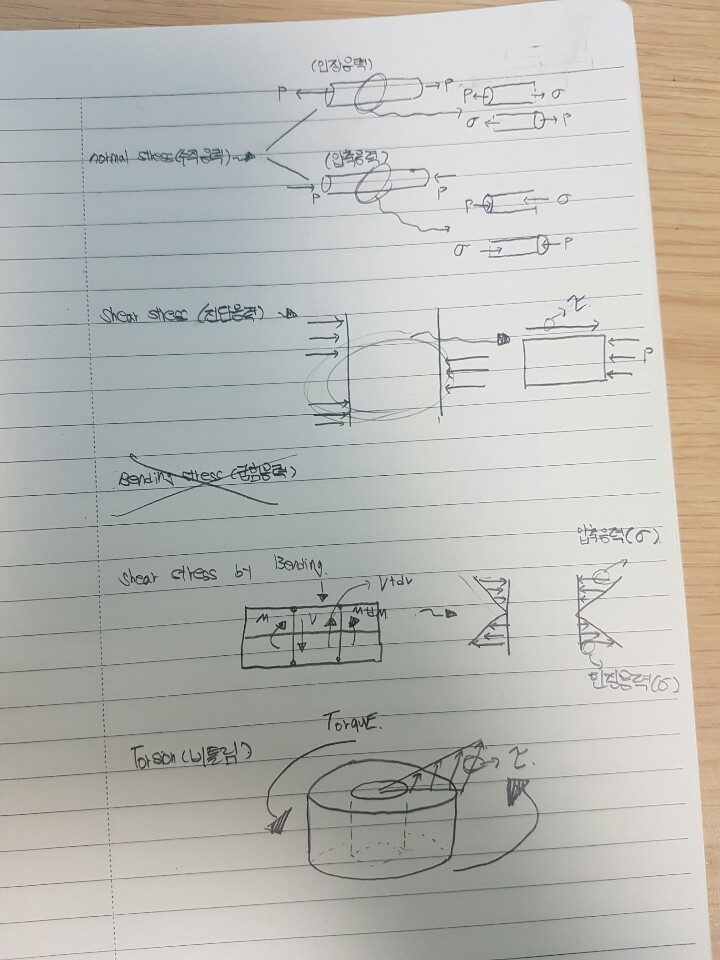 (인장응력)
P P P σ
σ P
normal stress(수직응력)
(압축응력)
P P P σ
σ P
shear stress (전단응력)
τ.
P
Bending stress (굽힘응력)
압축응력(σ)
shear stress by Bending
V+dv
M V M+dM
인장응력(σ)
Torque.
Torsion(비틀림) τ.